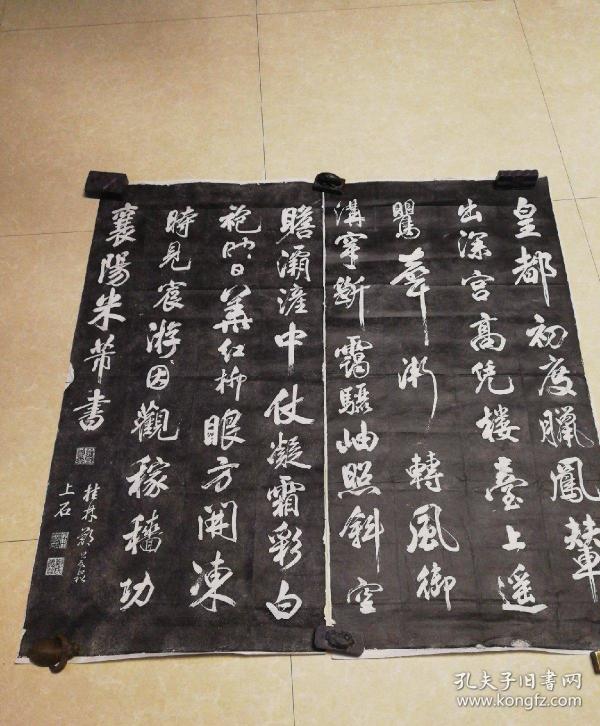 皇都初度臘鳳輦
出深宮高凭樓臺上遥
鸎聲漸轉風御
溝穿斷靄驪岫照斜空
瞻灞滻中仗凝霜彩白
袍映日華红柳眼方開凍
時見宸游因觀稼穡功
襄陽米芾書
桂林
上石
孔夫子旧书网
www.kongfz.com